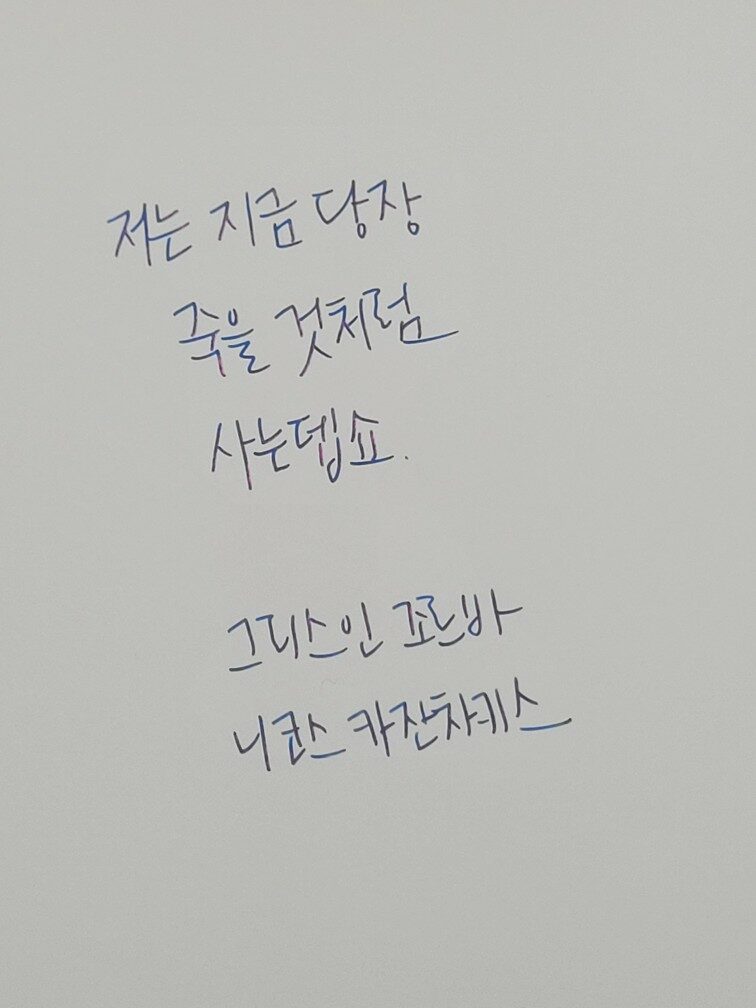 저는 지금 당장
죽을 것처럼
사는뎁쇼.
그리스인 조르바
니코스 카잔차키스